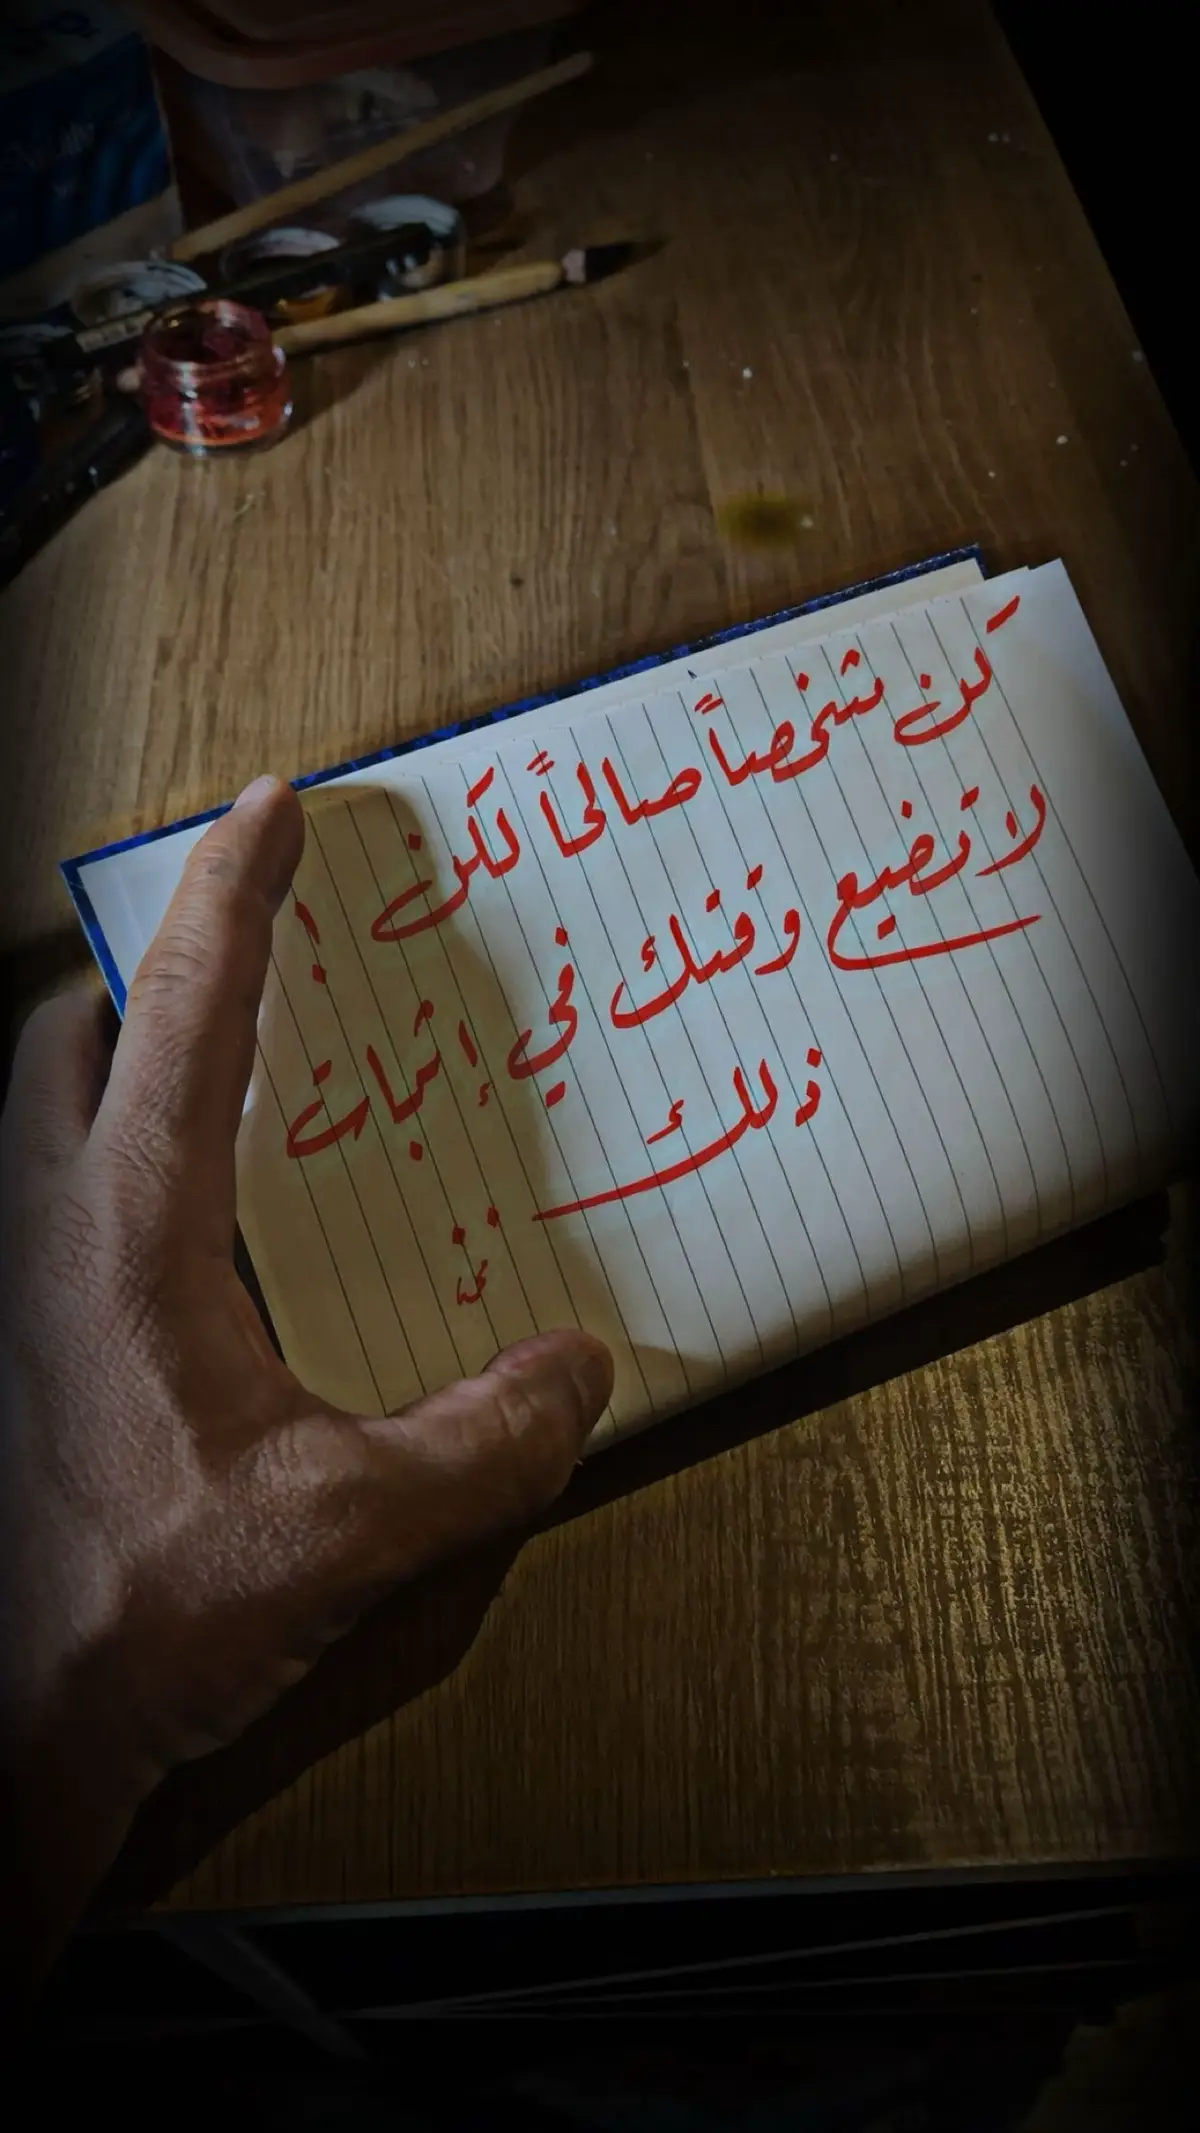 كن شخصاً صالحاً لكن !
لا تضيع وقتك في إثبات
ذلك